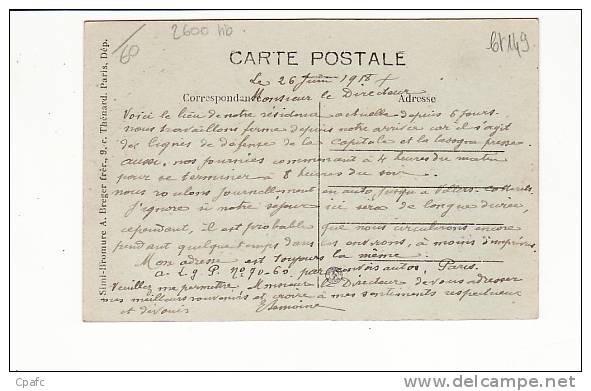 2600 hb
60
6t149
CARTE POSTALE
Le 26 Juin 1918
Monsieur le Directeur
Correspondance
Adresse
Voici le lieu de notre résidence actuelle depuis 6 jours.
nous travaillons ferme depuis notre arrivée car il s'agit
des lignes de défense de la Capitale et la besogne presse.
aussi, nos journées commencent à 4 heures du matin
pour se terminer à 8 heures du soir.
nous roulons journellement en auto jusqu'à Villers-Cotterets.
J'ignore si notre séjour ici sera de longue durée,
cependant, il est probable que nous circulerons encore
pendant quelque temps dans les environs, à moins d'imprévus.
Mon adresse est toujours la même.
par Convois autos, Paris.
Veuillez me permettre, Monsieur le Directeur de vous adresser
mes meilleurs souvenirs et croire à mes sentiments respectueux
et dévoués
Lemoine
Simi-Bromure A. Breger frèr., 9, r. Thénard. Paris, Dép.
Cpafc
www.delcampe.net